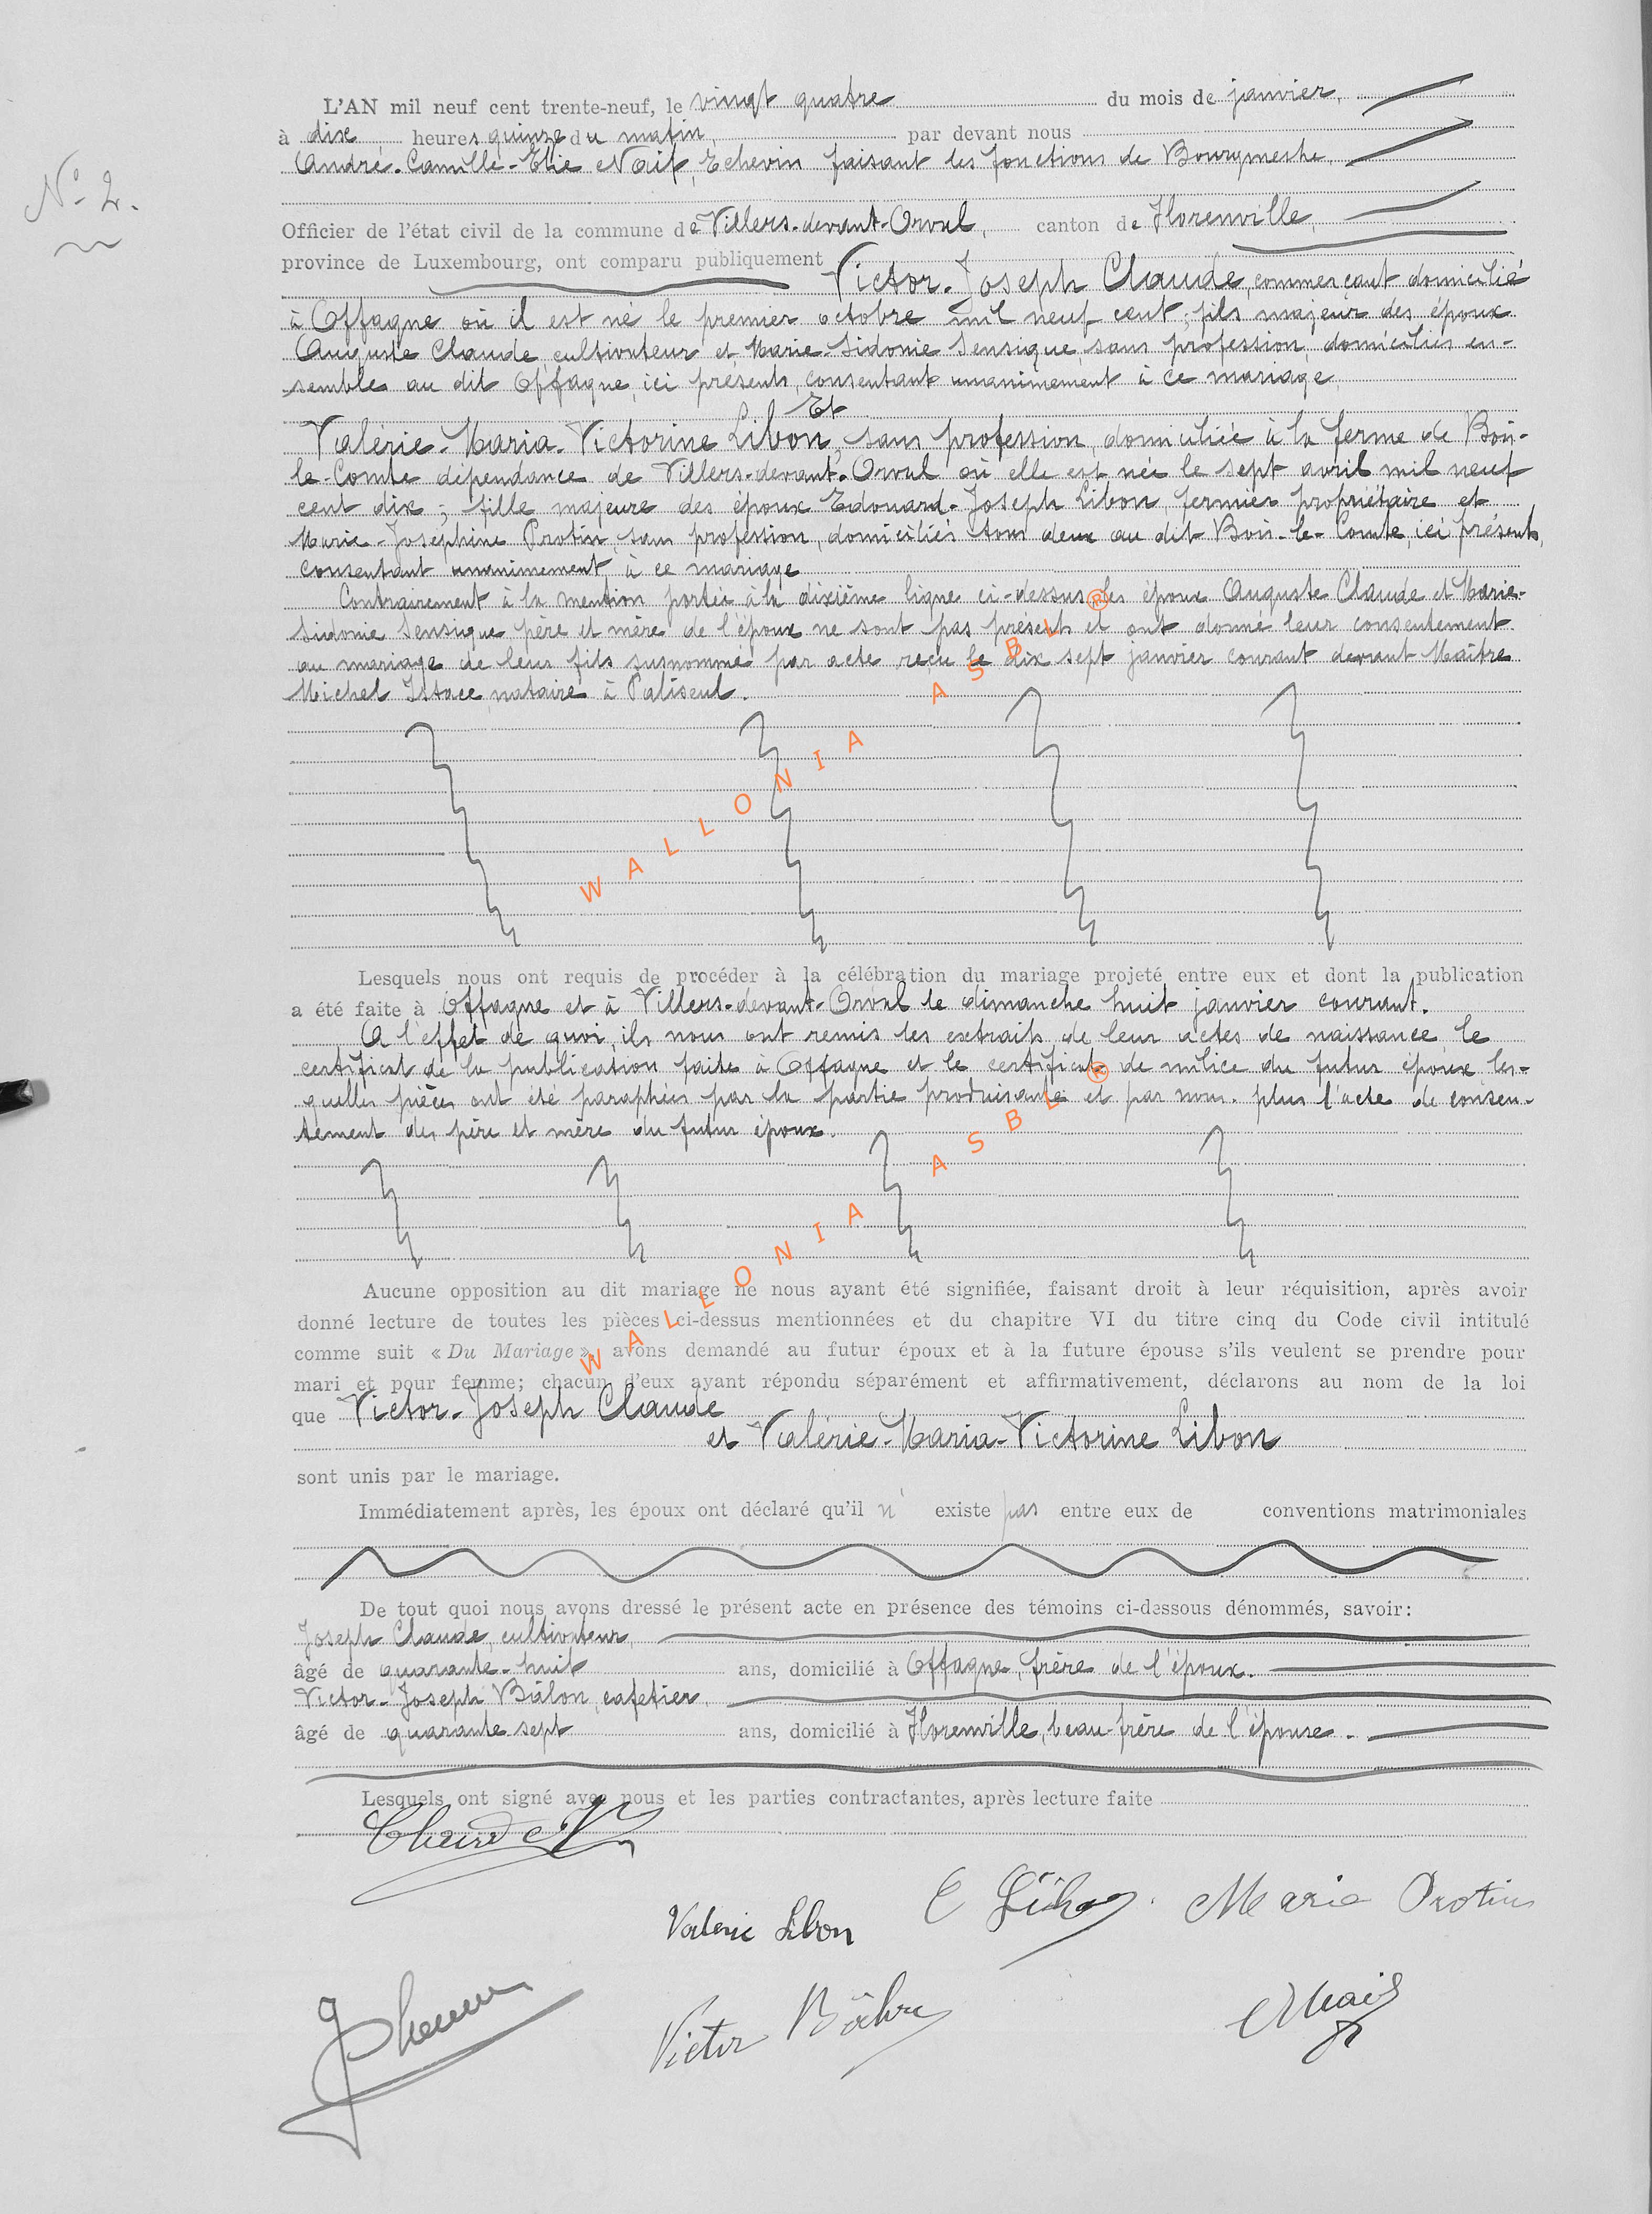 N° 2.
L'AN mil neuf cent trente-neuf, le vingt quatre du mois de janvier,
à dix heures quinze du matin, par devant nous
André-Camille-Elie Naif, Echevin faisant les fonctions de Bourgmestre,
Officier de l'état civil de la commune de Villers-devant-Orval, canton de Florenville,
province de Luxembourg, ont comparu publiquement Victor-Joseph Claude, commerçant domicilié
à Offagne où il est né le premier octobre mil neuf cent; fils majeur des époux
Auguste Claude cultivateur et Marie-Sidonie Sensique sans profession, domiciliés en-
semble au dit Offagne, ici présents, consentant unanimement à ce mariage,
Et
Valérie-Maria-Victorine Libon, sans profession, domiciliée à la ferme de Bois-
le-Comte dépendance de Villers-devant-Orval où elle est née le sept avril mil neuf
cent dix; fille majeure des époux Edouard-Joseph Libon, fermier propriétaire et
Marie-Joséphine Protin, sans profession, domiciliés tous deux au dit Bois-le-Comte, ici présents,
consentant unanimement à ce mariage
Contrairement à la mention portée à la dixième ligne ci-dessus, les époux Auguste Claude et Marie-
Sidonie Sensique père et mère de l'époux ne sont pas présents et ont donné leur consentement
au mariage de leur fils susnommé par acte reçu le dix sept janvier courant devant Maître
Michel Istace, notaire à Paliseul.
Lesquels nous ont requis de procéder à la célébration du mariage projeté entre eux et dont la publication
a été faite à Offagne et à Villers-devant-Orval le dimanche huit janvier courant.
A l'effet de quoi, ils nous ont remis les extraits de leur actes de naissance, le
certificat de la publication faite à Offagne et le certificat de milice du futur époux les-
quelles pièces ont été paraphées par la partie produisante et par nous. plus l'acte de consen-
tement des père et mère du futur époux.
WALLONIA ASBL ®
WALLONIA ASBL ®
Aucune opposition au dit mariage ne nous ayant été signifiée, faisant droit à leur réquisition, après avoir
donné lecture de toutes les pièces ci-dessus mentionnées et du chapitre VI du titre cinq du Code civil intitulé
comme suit « Du Mariage », avons demandé au futur époux et à la future épouse s'ils veulent se prendre pour
mari et pour femme; chacun d'eux ayant répondu séparément et affirmativement, déclarons au nom de la loi
que Victor-Joseph Claude
et Valérie-Maria-Victorine Libon
sont unis par le mariage.
Immédiatement après, les époux ont déclaré qu'il n' existe pas entre eux de conventions matrimoniales
De tout quoi nous avons dressé le présent acte en présence des témoins ci-dessous dénommés, savoir:
Joseph Claude, cultivateur,
âgé de quarante-huit ans, domicilié à Offagne, frère de l'époux.
Victor-Joseph Bâlon, cafetier,
âgé de quarante sept ans, domicilié à Florenville, beau-frère de l'épouse.
Lesquels ont signé avec nous et les parties contractantes, après lecture faite
Claude V
Valerie Libon E Libon Marie Protin
Victor Bâlon